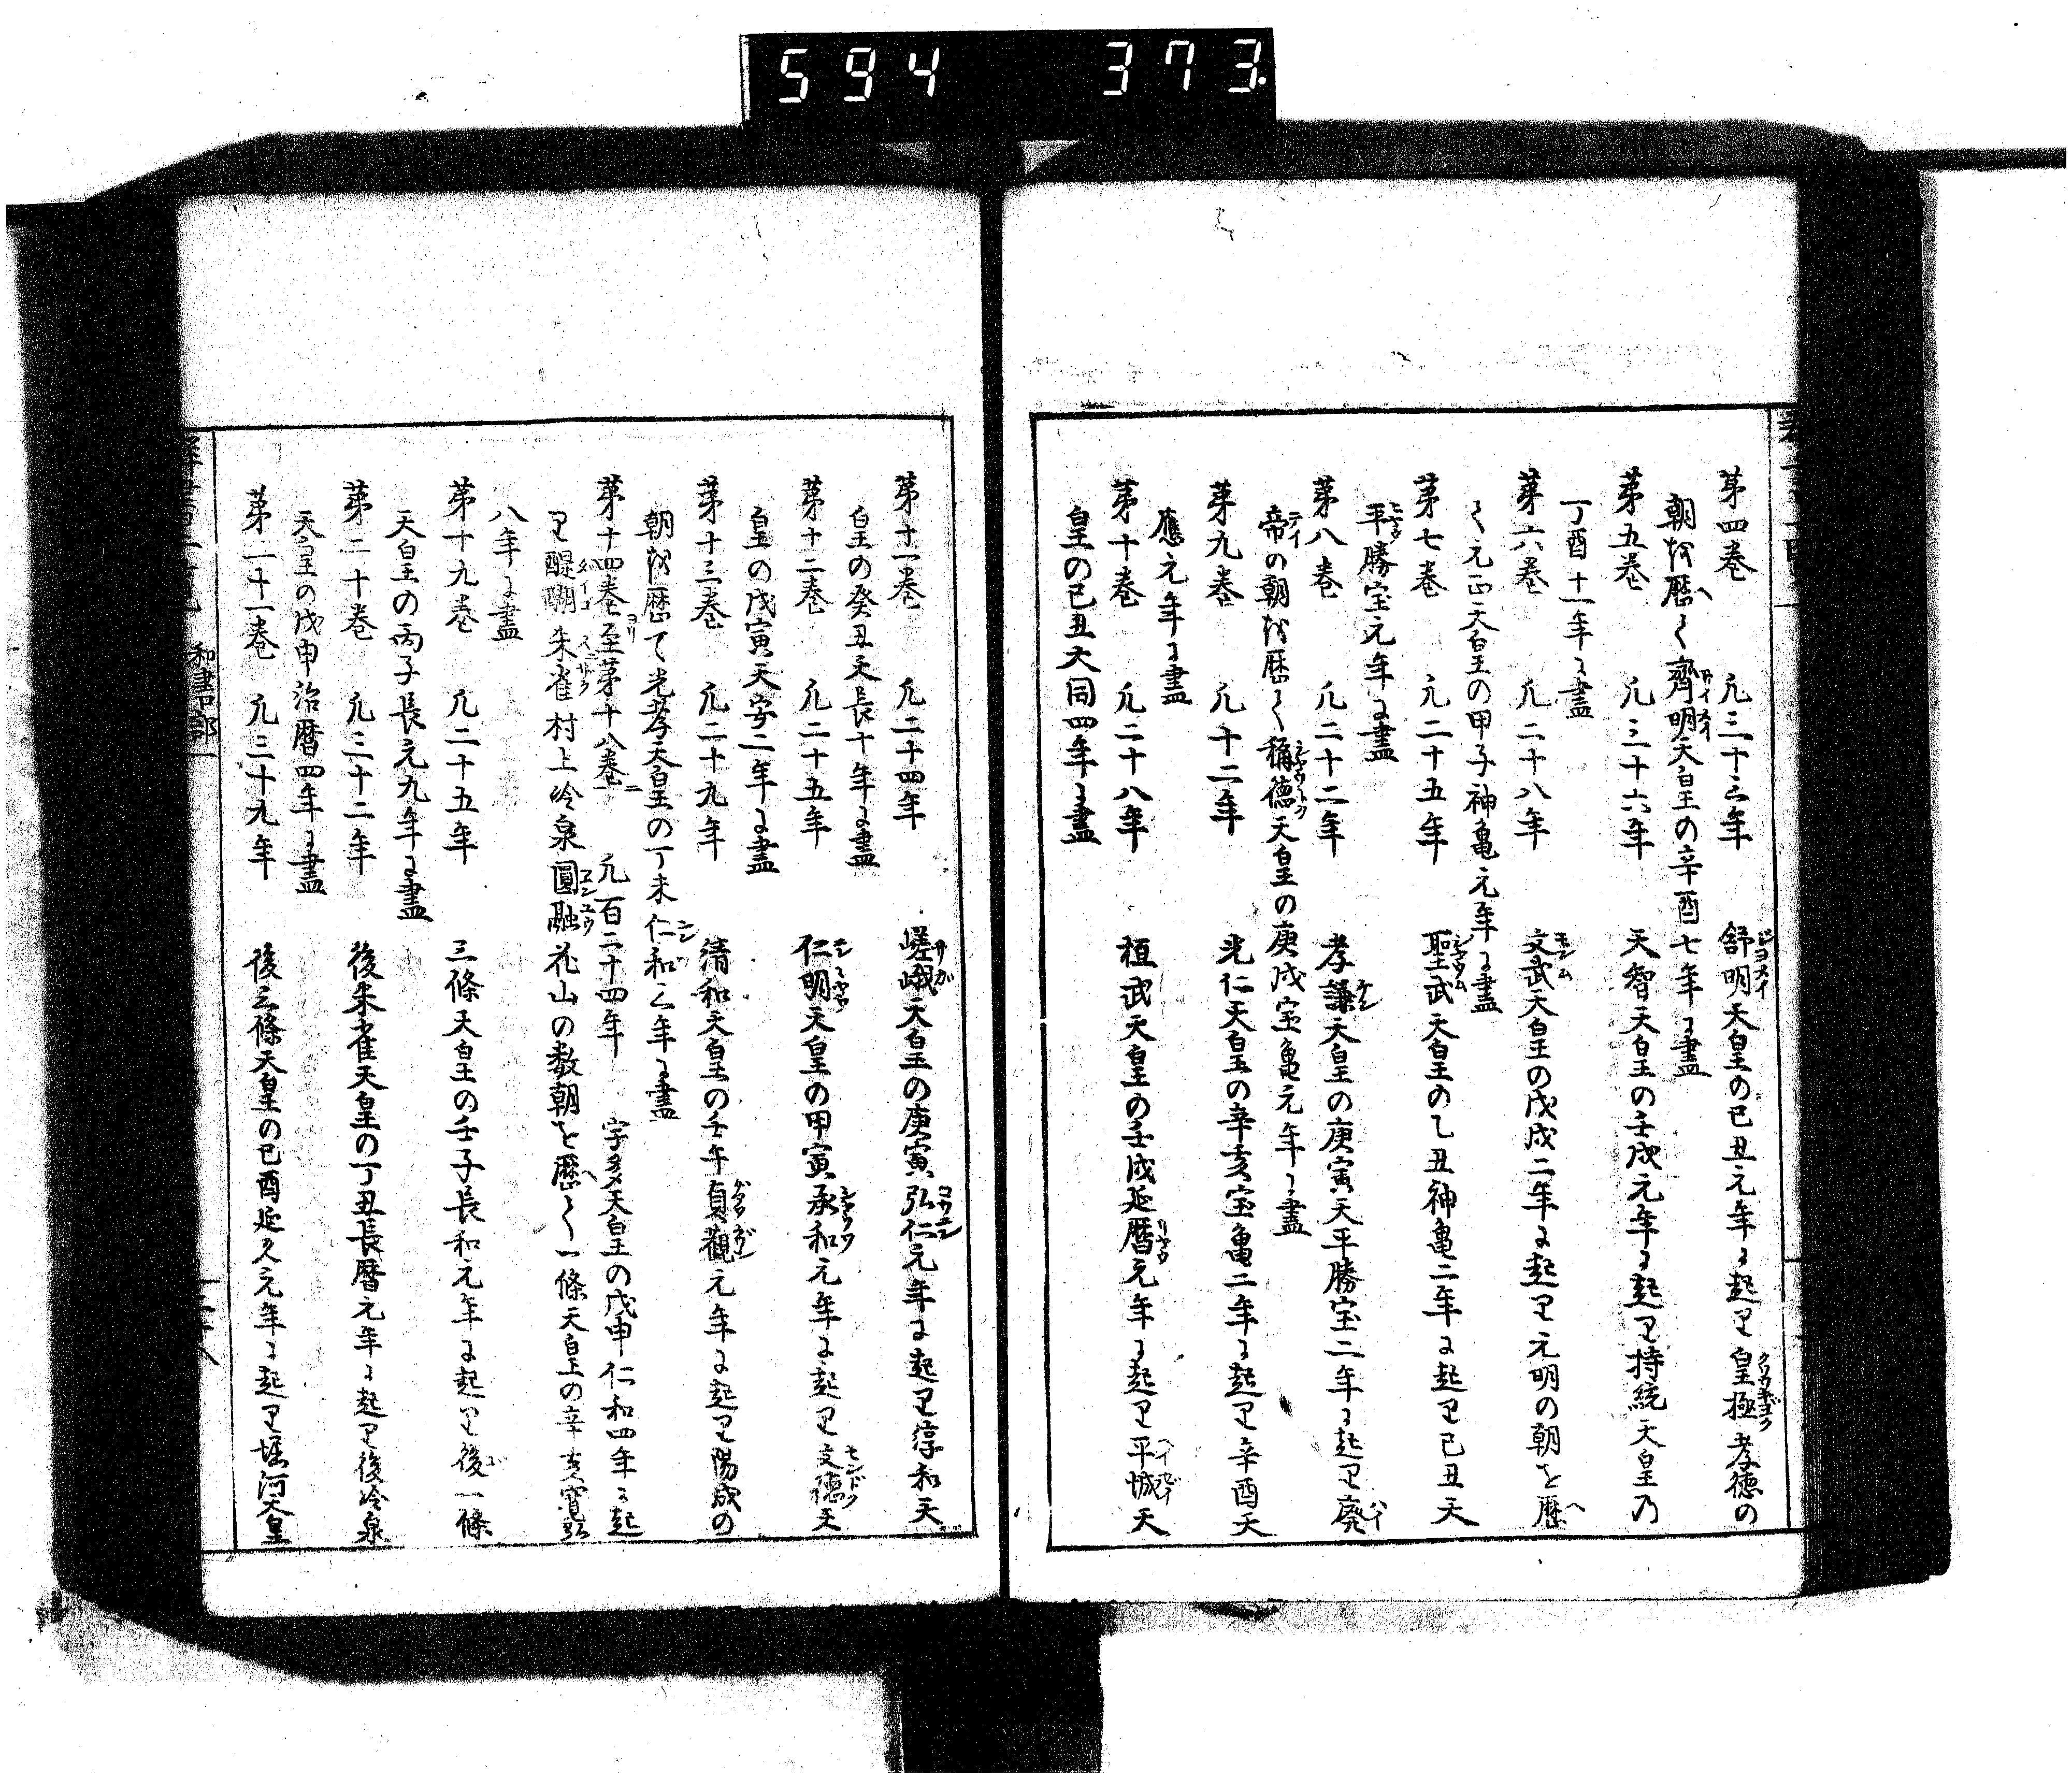 594 373.
第四巻 凡三十三年 舒明天皇の己丑元年に起り皇極孝徳の
朝を歴て齊明天皇の辛酉七年に盡
第五巻 凡三十六年 天智天皇の壬戌元年に起り持統天皇乃
丁酉十一年に盡
第六巻 凡二十八年 文武天皇の戊戌二年に起り元明の朝を歴
て元正天皇の甲子神亀元年に盡
第七巻 凡二十五年 聖武天皇の乙丑神亀二年に起り己丑天
平勝宝元年に盡
第八巻 凡二十二年 孝謙天皇の庚寅天平勝宝二年に起り廃
帝の朝を歴て稱徳天皇の庚戌宝亀元年に盡
第九巻 凡十二年 光仁天皇の辛亥宝亀二年に起り辛酉天
應元年に盡
第十巻 凡二十八年 桓武天皇の壬戌延暦元年に起り平城天
皇の己丑大同四年に盡
第十一巻 凡二十四年 嵯峨天皇の庚寅弘仁元年に起り淳和天
皇の癸丑天長十年に盡
第十二巻 凡二十五年 仁明天皇の甲寅承和元年に起り文徳天
皇の戊寅天安二年に盡
第十三巻 凡二十九年 清和天皇の壬午貞觀元年に起り陽成の
朝を歴て光孝天皇の丁未仁和三年に盡
第十四巻ヨリ至第十八巻ニ 凡百二十四年 宇多天皇の戊申仁和四年に起
り醍醐朱雀村上冷泉圓融花山の数朝を歴て一條天皇の辛亥寛弘
八年に盡
第十九巻 凡二十五年 三條天皇の壬子長和元年に起り後一條
天皇の丙子長元九年に盡
第二十巻 凡三十二年 後朱雀天皇の丁丑長暦元年に起り後冷泉
天皇の戊申治暦四年に盡
第二十一巻 凡三十九年 後三條天皇の己酉延久元年に起り堀河天皇
和書部一